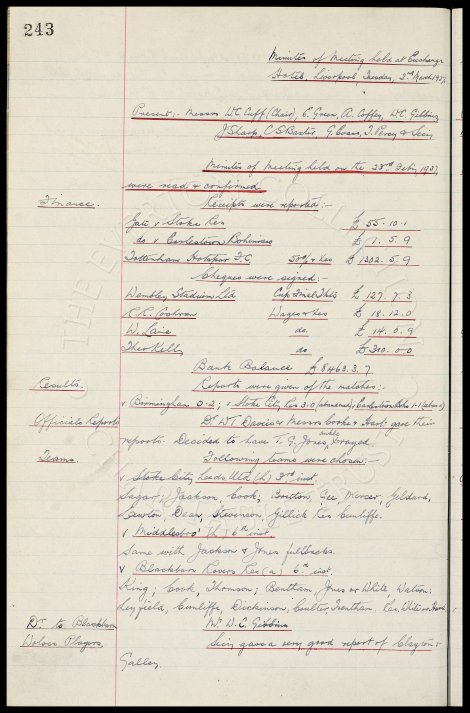 243
Minutes of Meeting held at Exchange
Hotel, Liverpool, Tuesday, 2nd March 1937
Present:- Messrs W.C. Cuff (Chair), E. Green, A. Coffey, W.C. Gibbins
J. Sharp, C.S. Baxter, G. Evans, T. Percy & Secy
Minutes of Meeting held on the 23rd Feby 1937
were read & confirmed
Finance. Receipts were reported:-
Gate v Stoke Res £ 55.10.1
do v Earlestown Bohemians £ 1.5.9
Tottenham Hotspur F.C. 50% Rec £ 1302.5.9
Cheques were signed:-
Wembley Stadium Ltd Cup Final Tkts £ 127.7.3
Wages & £ 18.12.0
do. £ 14.0.9
Theo Kelly do £ 310.0.0
Bank Balance £8463.3.7
Results. Reports were given of the matches:-
v Birmingham 0-2; v Stoke City Res 3.0 (abandoned);
Officials Reports Dr. W.T. Davies & Messrs Cooke & Hart gave their
reports. Decided to have T.G. Jones ankle Xrayed.
Teams. Following teams were chosen:-
v Stoke City, Leeds Utd (h) 3rd inst.
Sagar; Jackson, Cook; Britton, Gee Mercer; Geldard,
Lawton Dean, Stevenson, Gillick Res Cunliffe
v Middlesbro' (h) 6th inst
Same with Jackson & Jones fullbacks.
v Blackburn Rovers Res (a) 6th inst
King; Cook, Thomson; Bentham, Jones or White, Watson;
Leyfield, Cunliffe, Dickinson, Coulter, Trentham. Res. White or
Dr. to Blackburn Mr. W.C. Gibbins
Wolves Players, Secy gave a very good report of Clayton &
Galley.